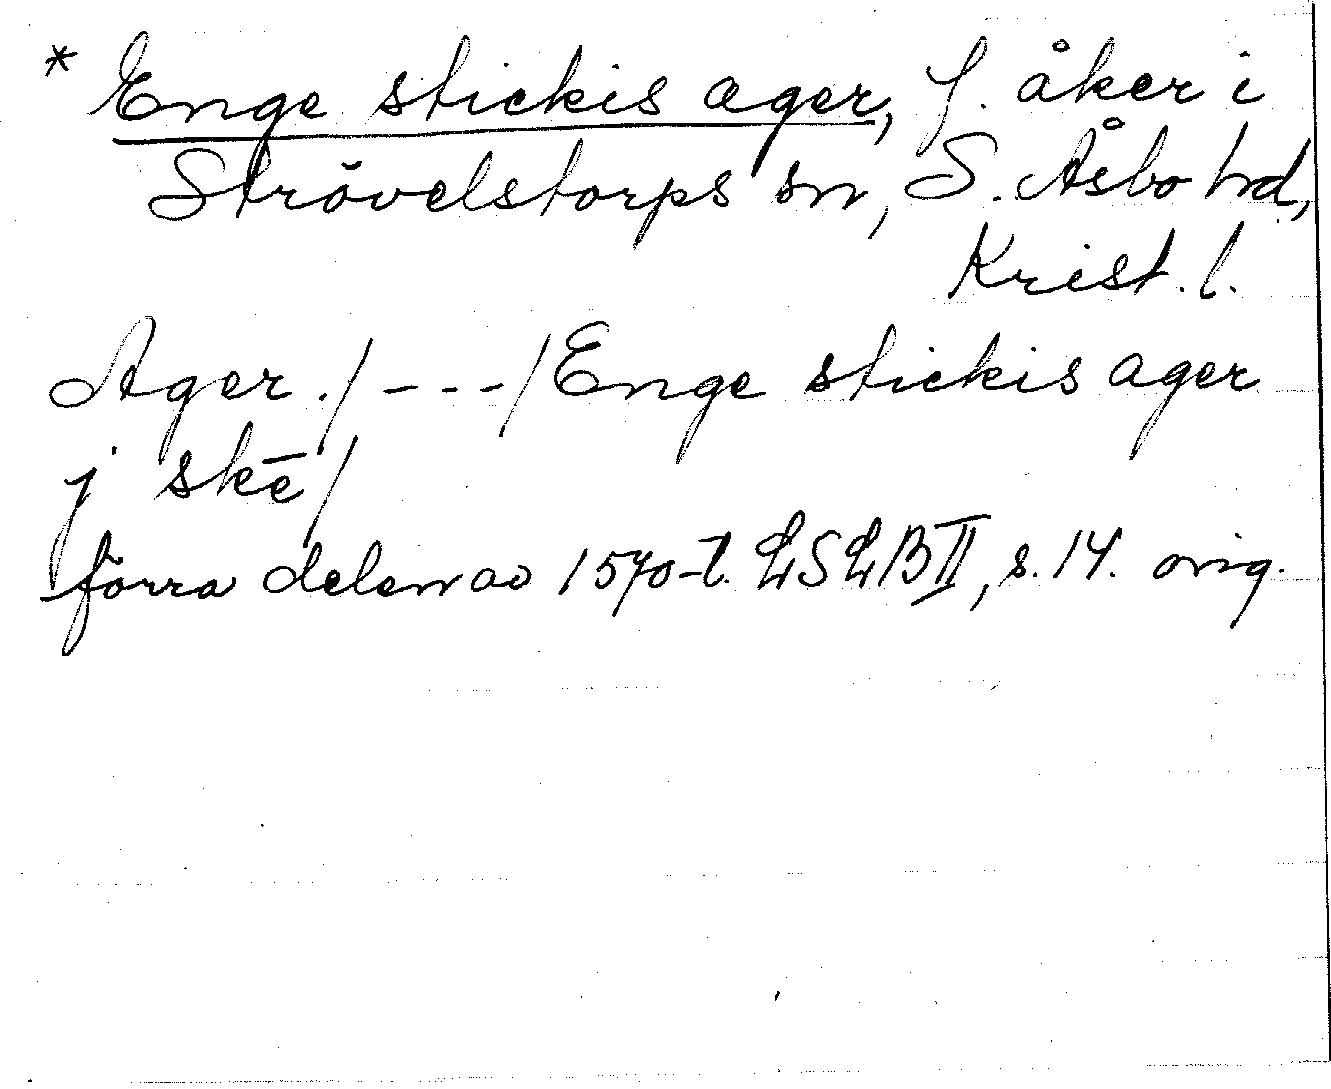 * Enge stickis ager, f. åker i
Strövelstorps sn, S. Åsbo hd,
Krist. l.
Ager. / - - - / Enge stickis ager
j skē /
förra delen av 1570-t. LSLB II, s. 14. orig.